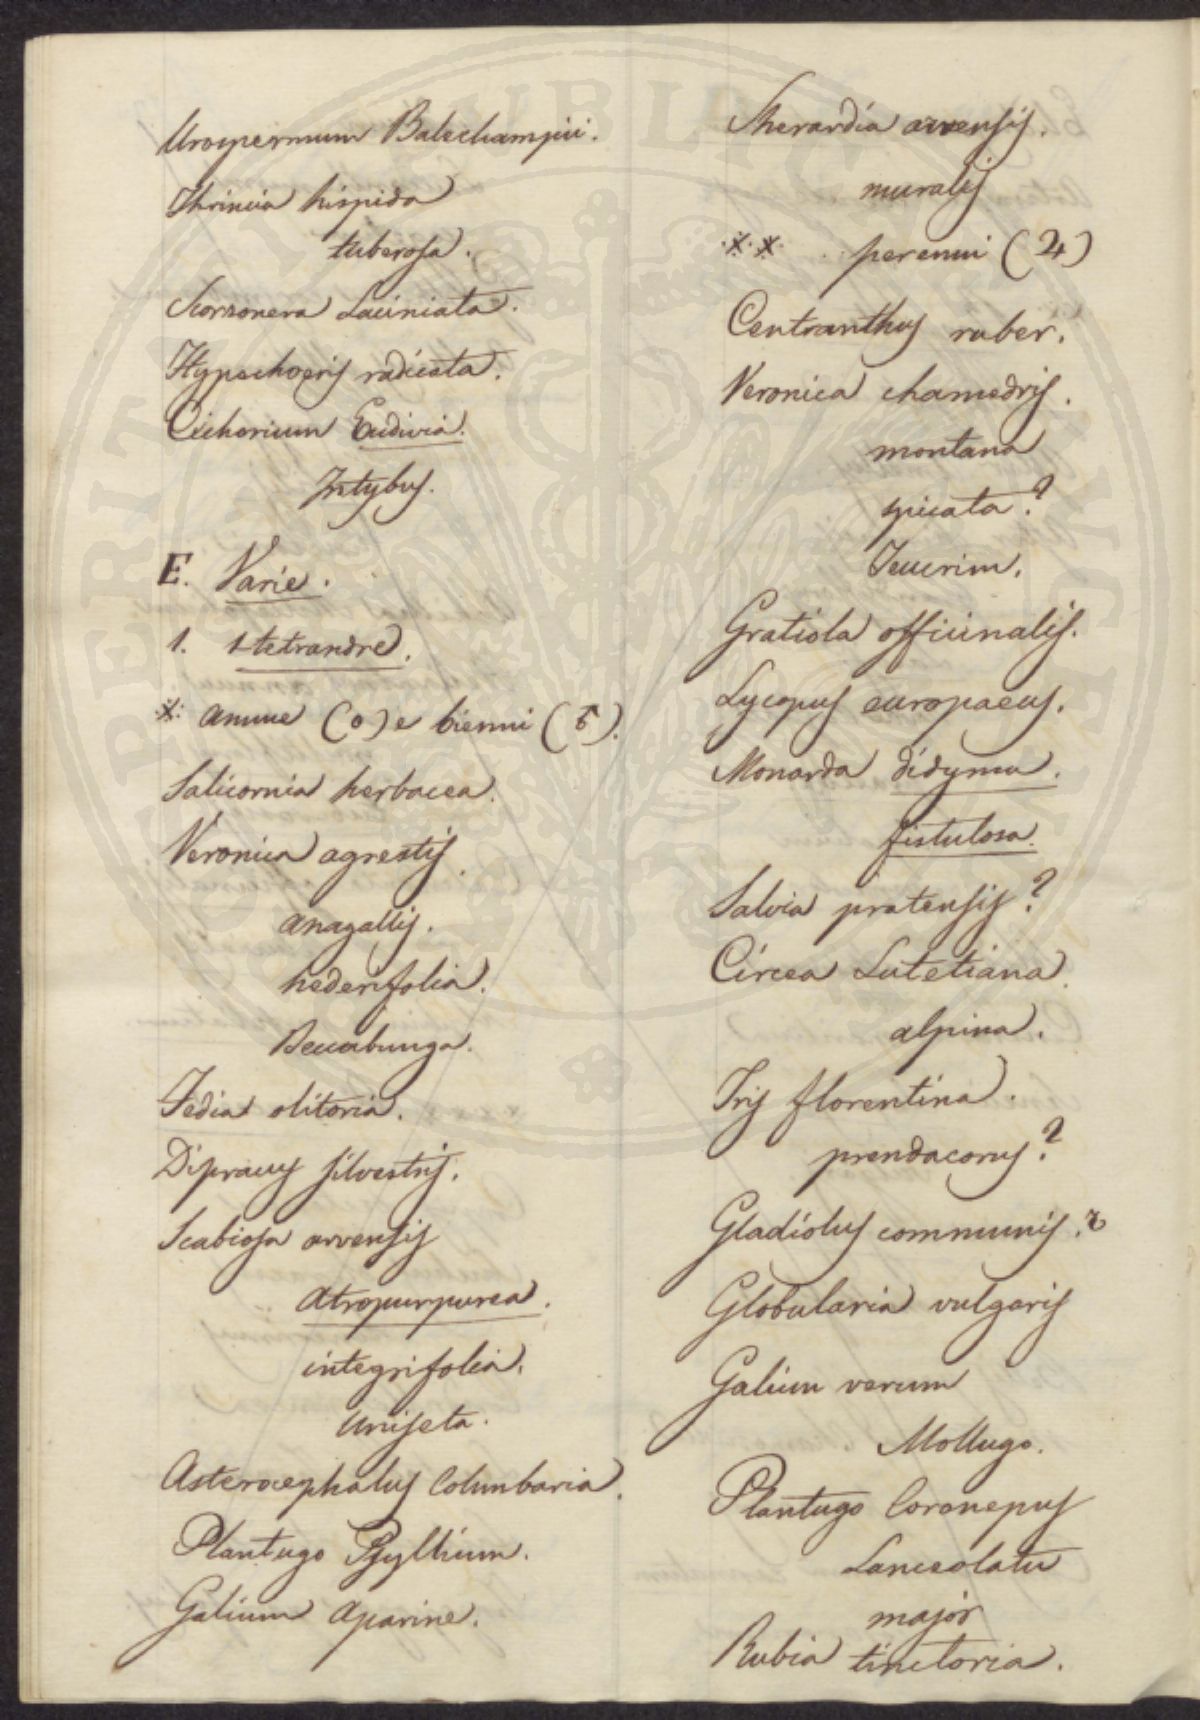 Urospermum Dalechampii.
Thrincia hispida
tuberosa.
Scorzonera Laciniata.
Hypochoeris radicata.
Cichorium Endivia.
Intybus.
E. Varie.
1. 1-tetrandre.
* annue (o) e bienni (♂).
Salicornia herbacea.
Veronica agrestis.
anagallis.
hederifolia.
Beccabunga.
Fedia olitoria.
Dipsacus silvestris.
Scabiosa arvensis
Atropurpurea.
integrifolia.
Uniseta.
Asterocephalus Columbaria.
Plantago Psyllium.
Galium Aparine.
Sherardia arvensis.
muralis
** perenni (♃)
Centranthus ruber.
Veronica chamedris.
montana
spicata?
Teucrim.
Gratiola officinalis.
Lycopus europaeus.
Monarda didyma.
fistulosa.
Salvia pratensis?
Circea Lutetiana.
alpina.
Iris florentina.
psendacorus?
Gladiolus communis.?
Globularia vulgaris
Galium verum
Mollugo.
Plantago Coronopus
Lanceolata
major
Rubia tinctoria.